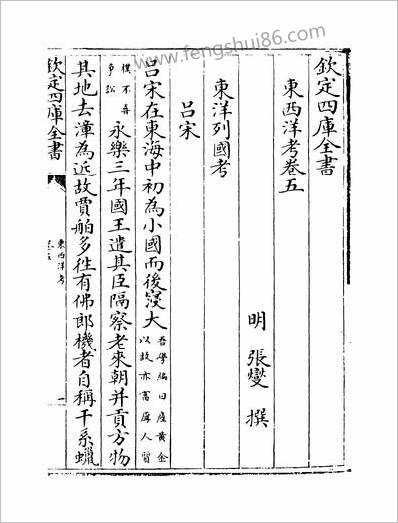 www.fengshui86.com
欽定四庫全書
東西洋考卷五
明 張燮 撰
東洋列國考
呂宋
呂宋在東海中初為小國而後寖大吾學編曰産黄金以故亦富厚人質
樸不喜爭訟永樂三年國王遣其臣隔察老來朝并貢方物
其地去漳為近故賈舶多徃有佛郎機者自稱干系蠟
欽定四庫全書
東西洋考
卷五
一